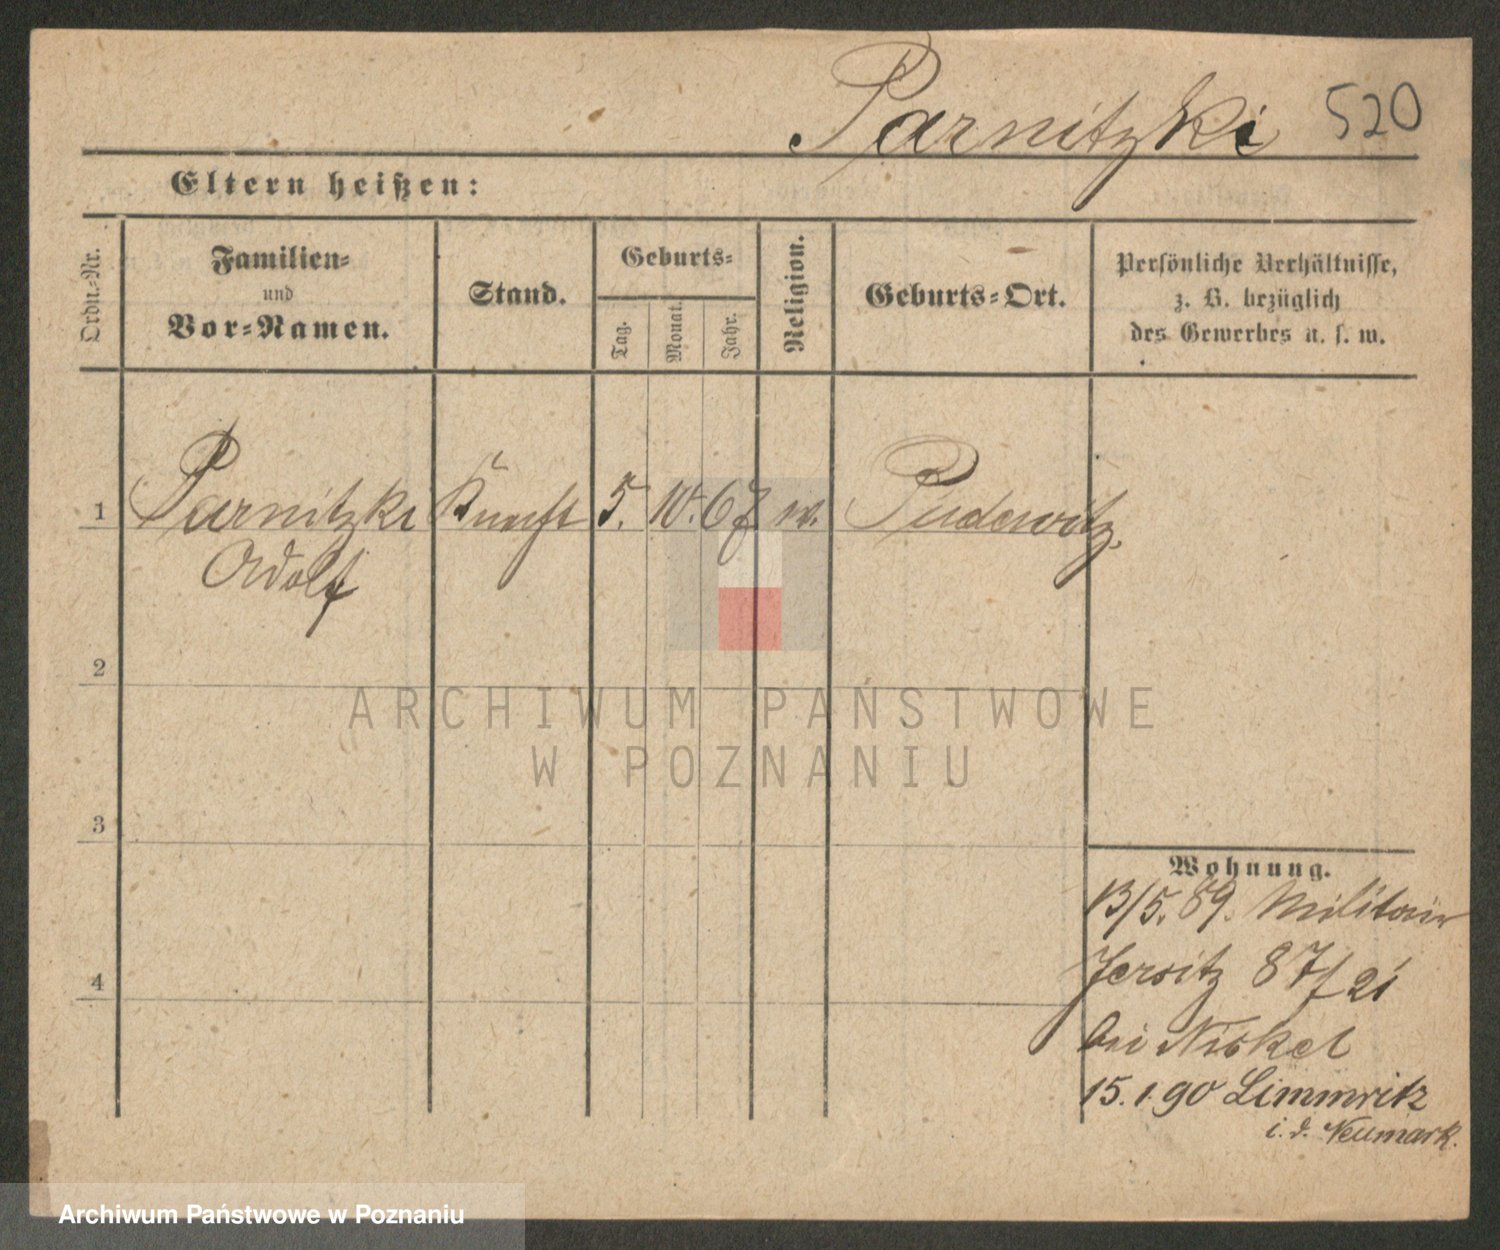 Parnitzki 520
Eltern heißen:
Ordn.-Nr.
Familien-
und
Vor-Namen.
Stand.
Geburts-
Tag.
Monat.
Jahr.
Religion.
Geburts-Ort.
Persönliche Verhältnisse,
z. B. bezüglich
des Gewerbes u. s. w.
1 Parnitzki 5. 10. 67 Pudewitz
Adolf
2
3
4
Wohnung.
13/5. 89. Militair
Jersitz 87/21
bei Niskel
15. 1. 90 Limmritz
i. d. Neumark.
ARCHIWUM PAŃSTWOWE
W POZNANIU
Archiwum Państwowe w Poznaniu